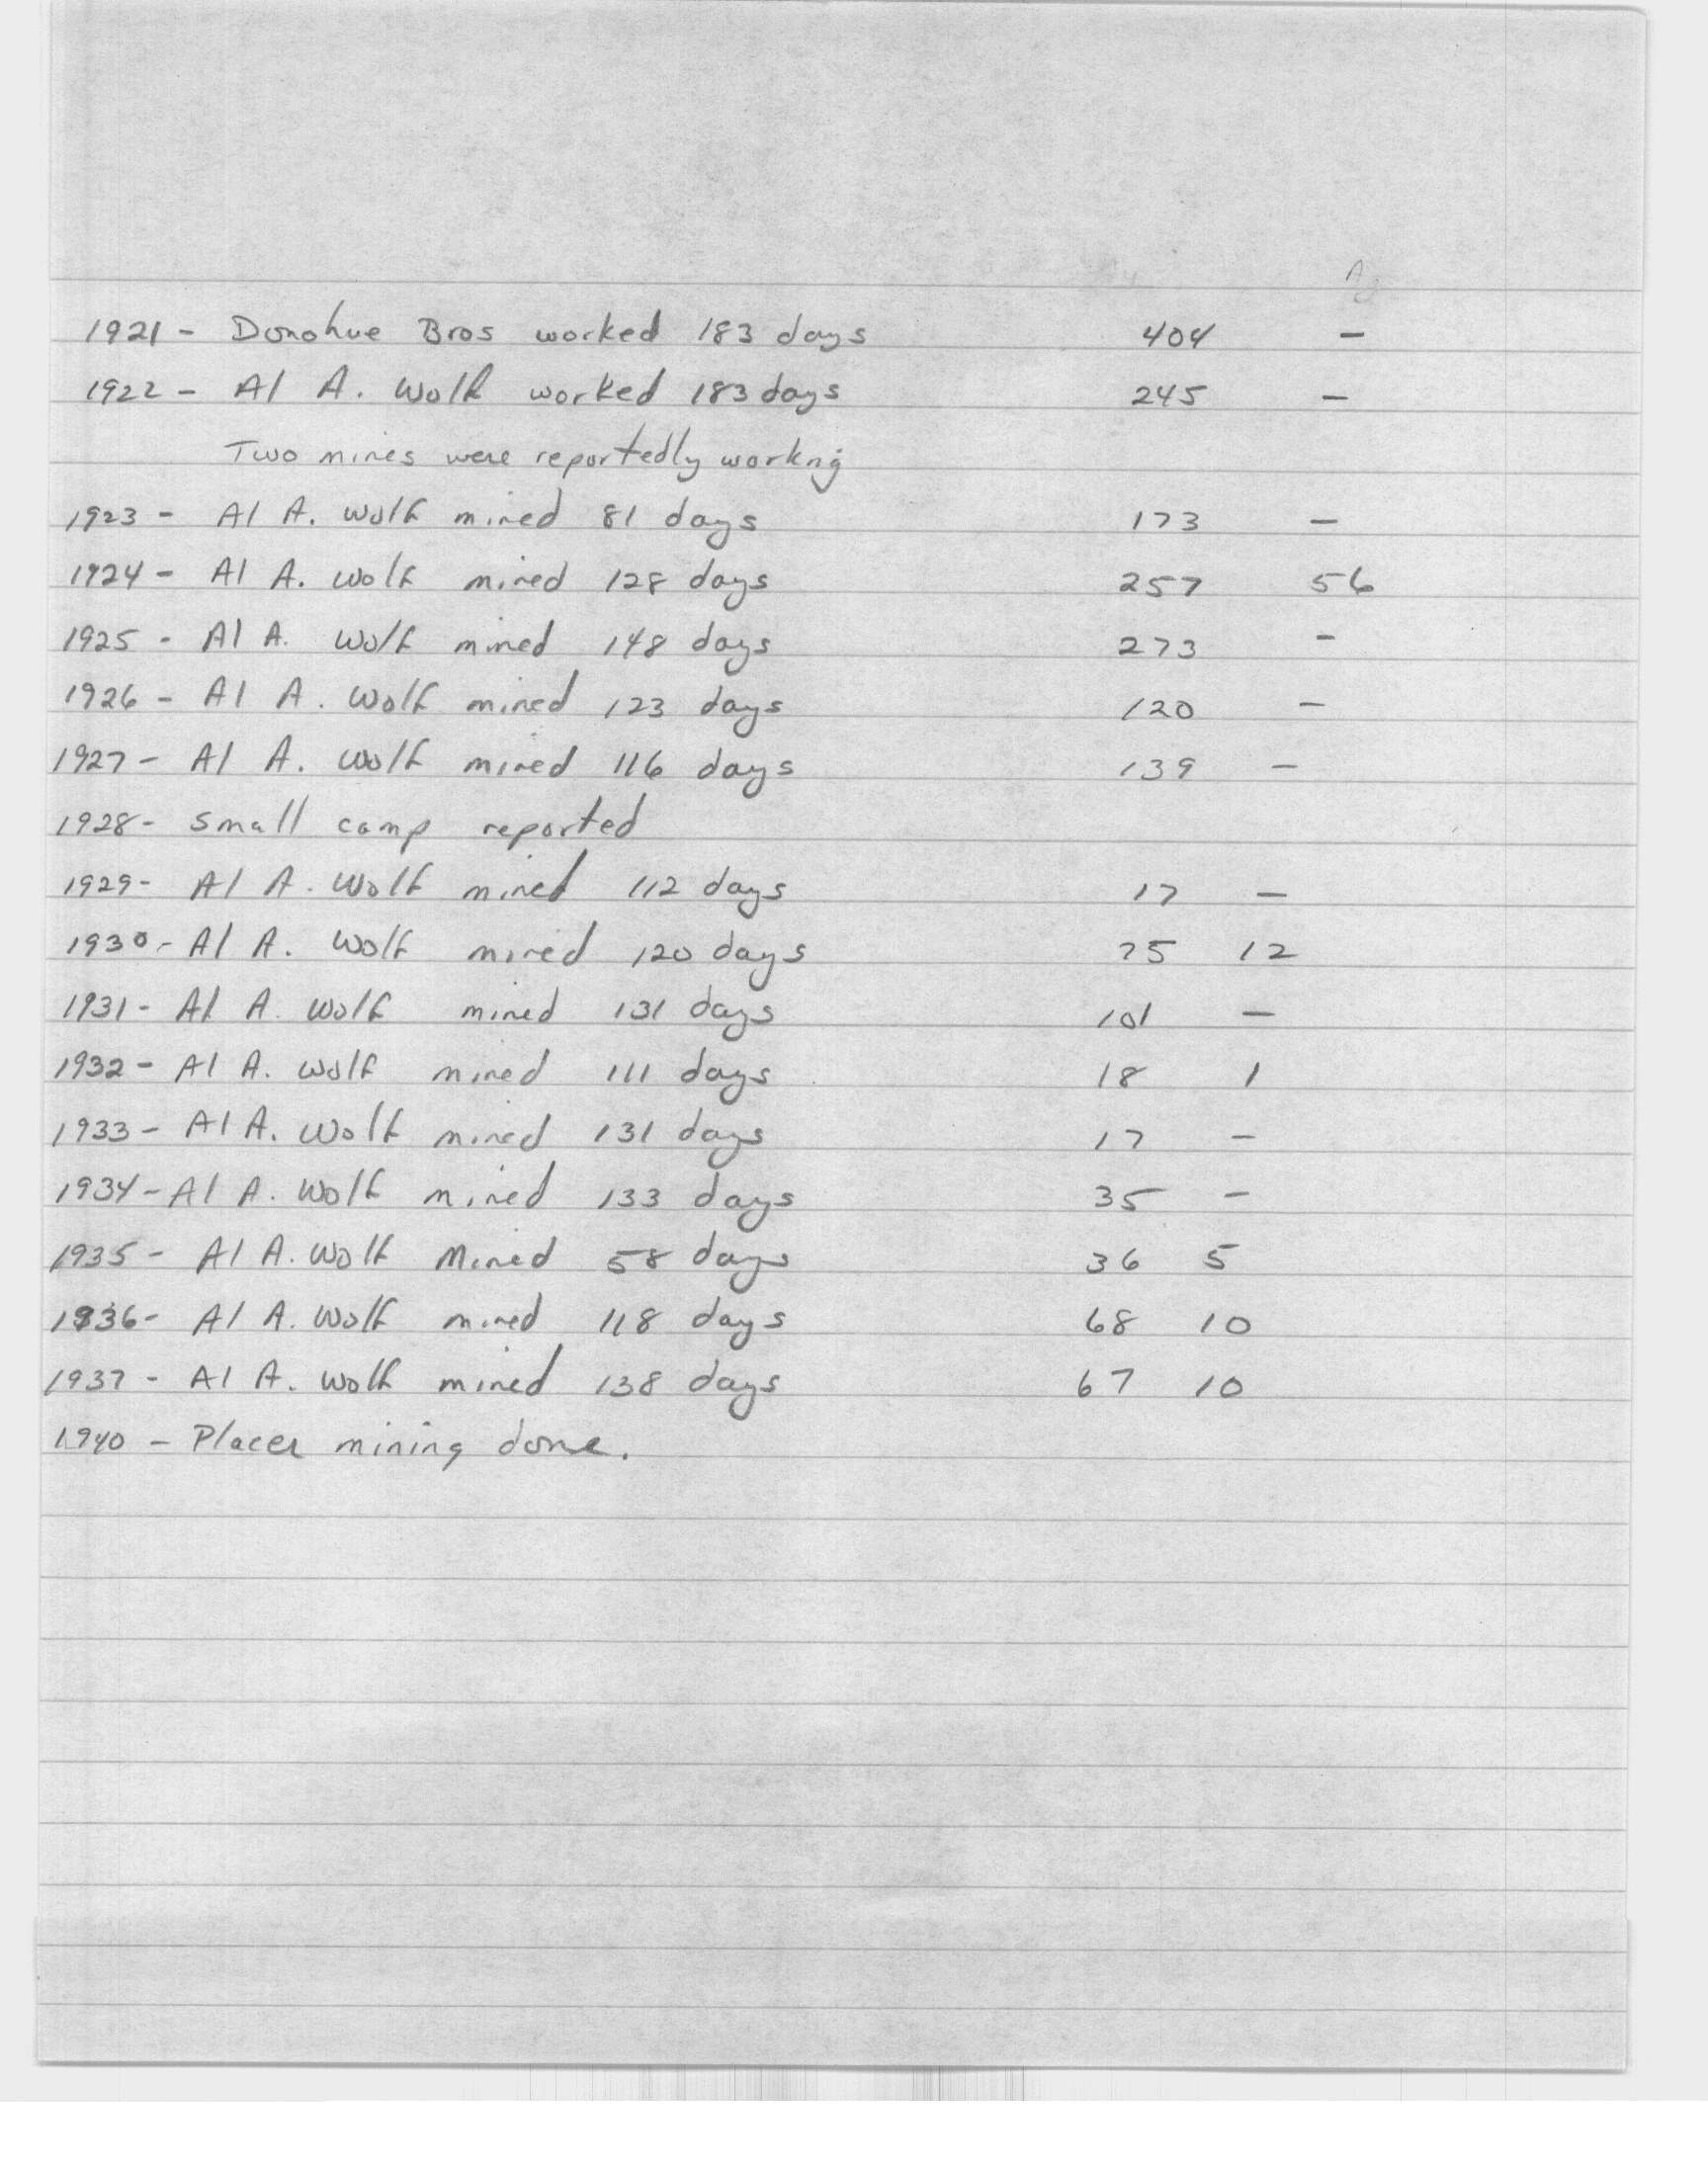 Ag
1921 - Donohue Bros worked 183 days 404 -
1922 - Al A. Wolf worked 183 days 245 -
Two mines were reportedly working
1923 - Al A. Wolf mined 81 days 173 -
1924 - Al A. Wolf mined 128 days 257 56
1925 - Al A. Wolf mined 148 days 273 -
1926 - Al A. Wolf mined 123 days 120 -
1927 - Al A. Wolf mined 116 days 139 -
1928 - Small camp reported
1929 - Al A. Wolf mined 112 days 17 -
1930 - Al A. Wolf mined 120 days 75 12
1931 - Al A. Wolf mined 131 days 101 -
1932 - Al A. Wolf mined 111 days 18 1
1933 - Al A. Wolf mined 131 days 17 -
1934 - Al A. Wolf mined 133 days 35 -
1935 - Al A. Wolf Mined 58 days 36 5
1936 - Al A. Wolf mined 118 days 68 10
1937 - Al A. Wolf mined 138 days 67 10
1940 - Placer mining done.